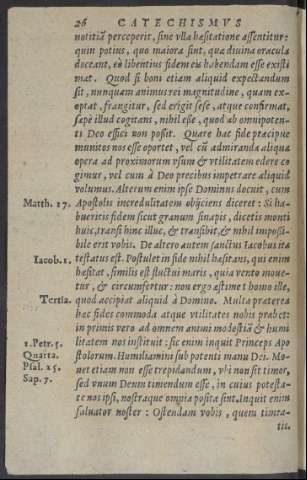 26 CATECHISMVS
notitiã perceperit, sine vlla hæsitatione assentitur:
quin potius, quo maiora sint, quæ diuina oracula
doceant, eò libentius fidem eis habendam esse existi
mat. Quod si boni etiam aliquid expectandum
sit, nunquam animus rei magnitudine, quam ex-
optat, frangitur, sed erigit sese, atque confirmat,
sæpè illud cogitans, nihil esse, quod ab omnipoten-
ti Deo effici non possit. Quare hac fide præcipuè
munitos nos esse oportet, vel cũ admiranda aliqua
opera ad proximorum vsum & vtilitatem edere co
gimur, vel cum à Deo precibus impetrare aliquid
volumus. Alterum enim ipse Dominus docuit, cum
Matth. 17. Apostolis incredulitatem obijciens diceret: Si ha-
bueritis fidem sicut granum sinapis, dicetis monti
huic, transi hinc illuc, & transibit, & nihil impossi-
bile erit vobis. De altero autem sanctus Iacobus ita
Iacob. 1. testatus est. Postulet in fide nihil hæsitans, qui enim
hæsitat, similis est fluctui maris, qui a vento moue-
tur, & circumfertur: non ergo æstimet homo ille,
Tertia. quod accipiat aliquid à Domino. Multa præterea
hæc fides commoda atque vtilitates nobis præbet:
in primis verò ad omnem animi modestiã & humi
1. Petr. 5. litatem nos instituit: sic enim inquit Princeps Apo
Quarta. stolorum. Humiliamini sub potenti manu Dei. Mo-
Psal. 25. net etiam non esse trepidandum, vbi non sit timor,
Sap. 7. sed vnum Deum timendum esse, in cuius potesta-
te nos ipsi, nostraque omnia posita sint. Inquit enim
saluator noster: Ostendam vobis, quem timea-
tis.